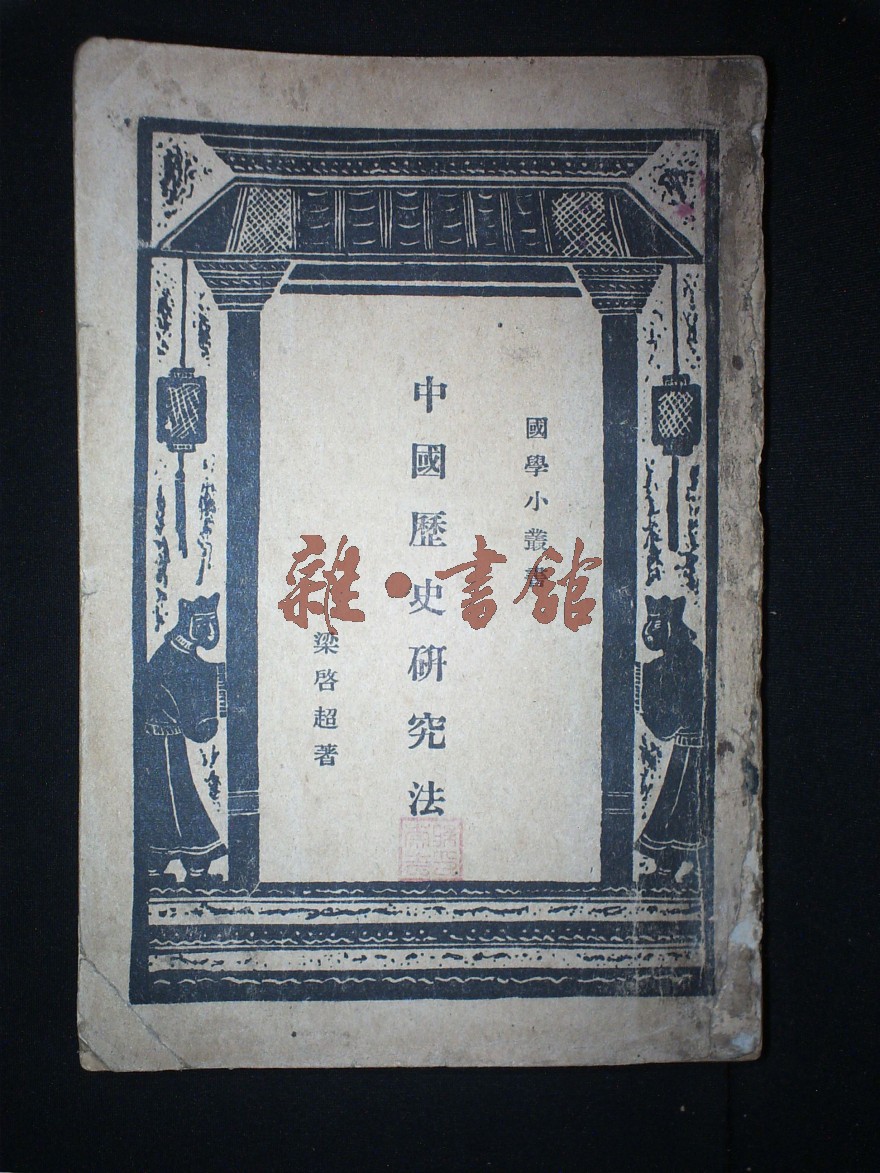 國學小叢書
中國歷史硏究法
梁啓超著
雜·書館